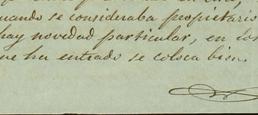 uando se consideraba propietario
hay novedad particular, en los
ue ha entrado se coloca bien.